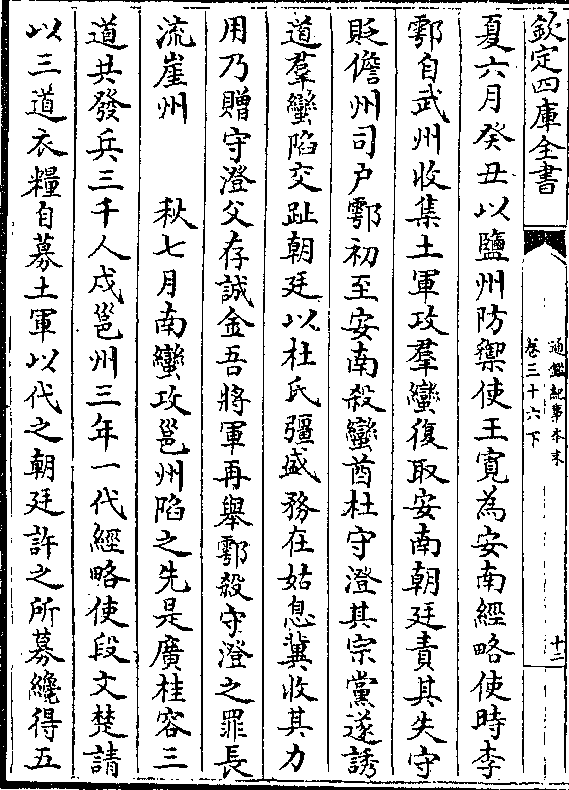 欽定四庫全書
通鑑紀事本末
卷三十六下
十二
夏六月癸丑以鹽州防禦使王寛為安南經略使時李
鄠自武州收集土軍攻羣蠻復取安南朝廷責其失守
貶儋州司户鄠初至安南殺蠻酋杜守澄其宗黨遂誘
道羣蠻陷交趾朝廷以杜氏彊盛務在姑息冀收其力
用乃贈守澄父存誠金吾將軍再舉鄠殺守澄之罪長
流崖州　　秋七月南蠻攻邕州陷之先是廣桂容三
道共發兵三千人戍邕州三年一代經略使段文楚請
以三道衣糧自募土軍以代之朝廷許之所募纔得五